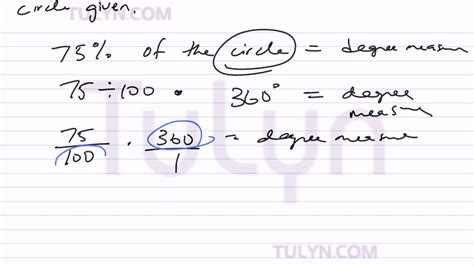 TULYN.COM
circle given.
75% of the circle = degree measure
75 ÷ 100 · 360° = degree measure
75/100 · 360/1 = degree measure
TuLyn
TULYN.COM